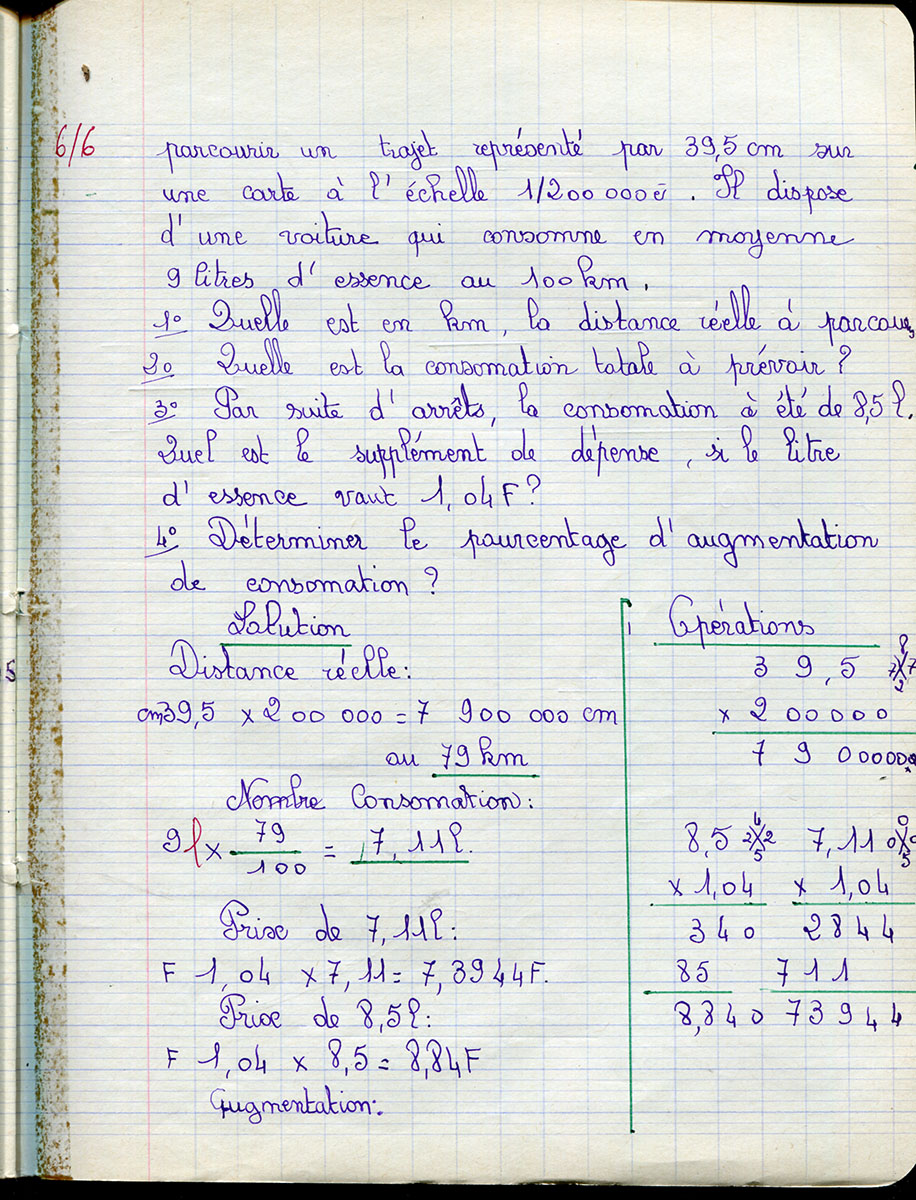 6/6
parcourir un trajet représenté par 39,5 cm sur
une carte à l'échelle 1/200 000è. Il dispose
d'une voiture qui consomne en moyenne
9 litres d'essence au 100 km.
1° Quelle est en km, la distance réelle à parcou
2° Quelle est la consomation totale à prévoir ?
3° Par suite d'arrêts, la consomation à été de 8,5 l.
Quel est le supplément de dépense, si le litre
d'essence vaut 1,04 F ?
4° Déterminer le pourcentage d'augmentation
de consomation ?
Solution
Distance réelle :
cm 39,5 x 200 000 = 7 900 000 cm
ou 79 km
Nombre Consomation :
9 l x 79/100 = 7,11 l.
Prix de 7,11 l :
F 1,04 x 7,11 = 7,3944 F.
Prix de 8,5 l :
F 1,04 x 8,5 = 8,84 F
Augmentation :
Opérations
39,5
x 200000
7 9 00000
8,5 7,11
x 1,04 x 1,04
340 2844
85 711
8,840 73944
5